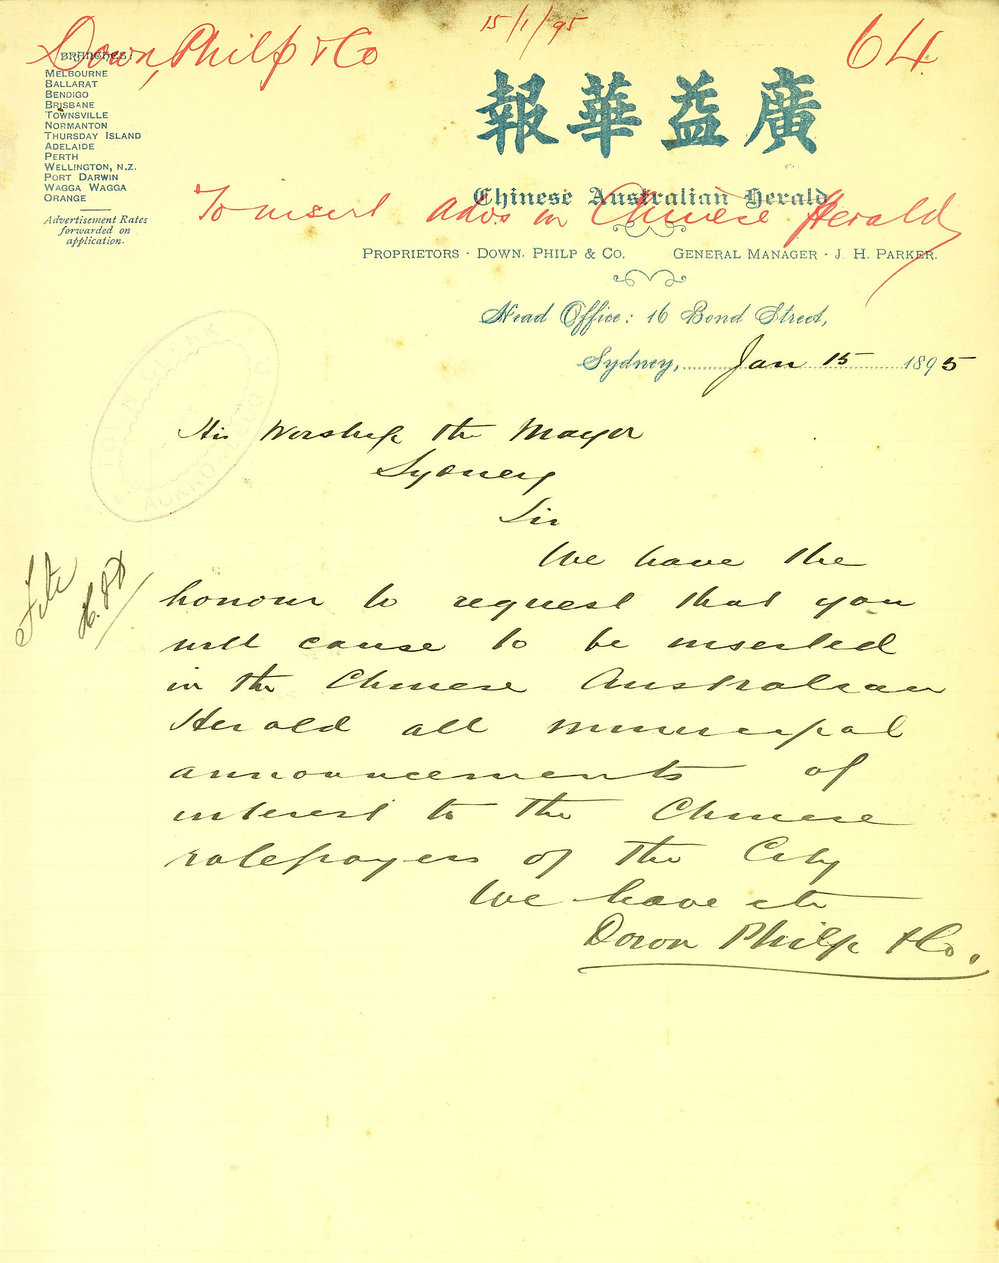 Down, Philp & Co
15/1/95
64
BRANCHES:
MELBOURNE
BALLARAT
BENDIGO
BRISBANE
TOWNSVILLE
NORMANTON
THURSDAY ISLAND
ADELAIDE
PERTH
WELLINGTON, N.Z.
PORT DARWIN
WAGGA WAGGA
ORANGE
Advertisement Rates
forwarded on
application.
報華益廣
Chinese Australian Herald
To insert advs in Chinese Herald
PROPRIETORS - DOWN, PHILP & CO. GENERAL MANAGER - J. H. PARKER.
Head Office: 16 Bond Street,
Sydney, Jan 15 1895
TOWN CLERK
ACKNOWLEDGED
His Worship the Mayor
Sydney
Sir
We have the
honour to request that you
will cause to be inserted
in the Chinese Australian
Herald all municipal
announcements of
interest to the Chinese
ratepayers of the City
We have etc
Down Philp & Co.
File